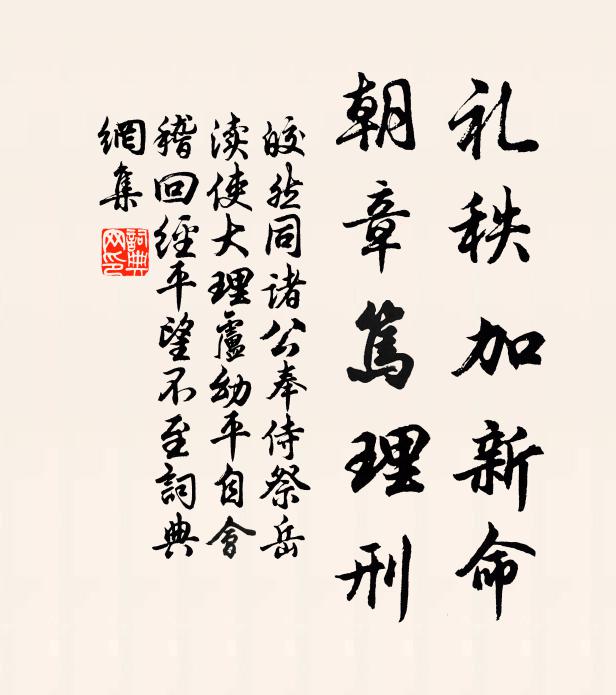 礼秩加新命
朝章笃理刑
皎然同诸公奉侍祭岳
渎使大理盧幼平自會
稽回經平望不至詞典
網集
詞典網印